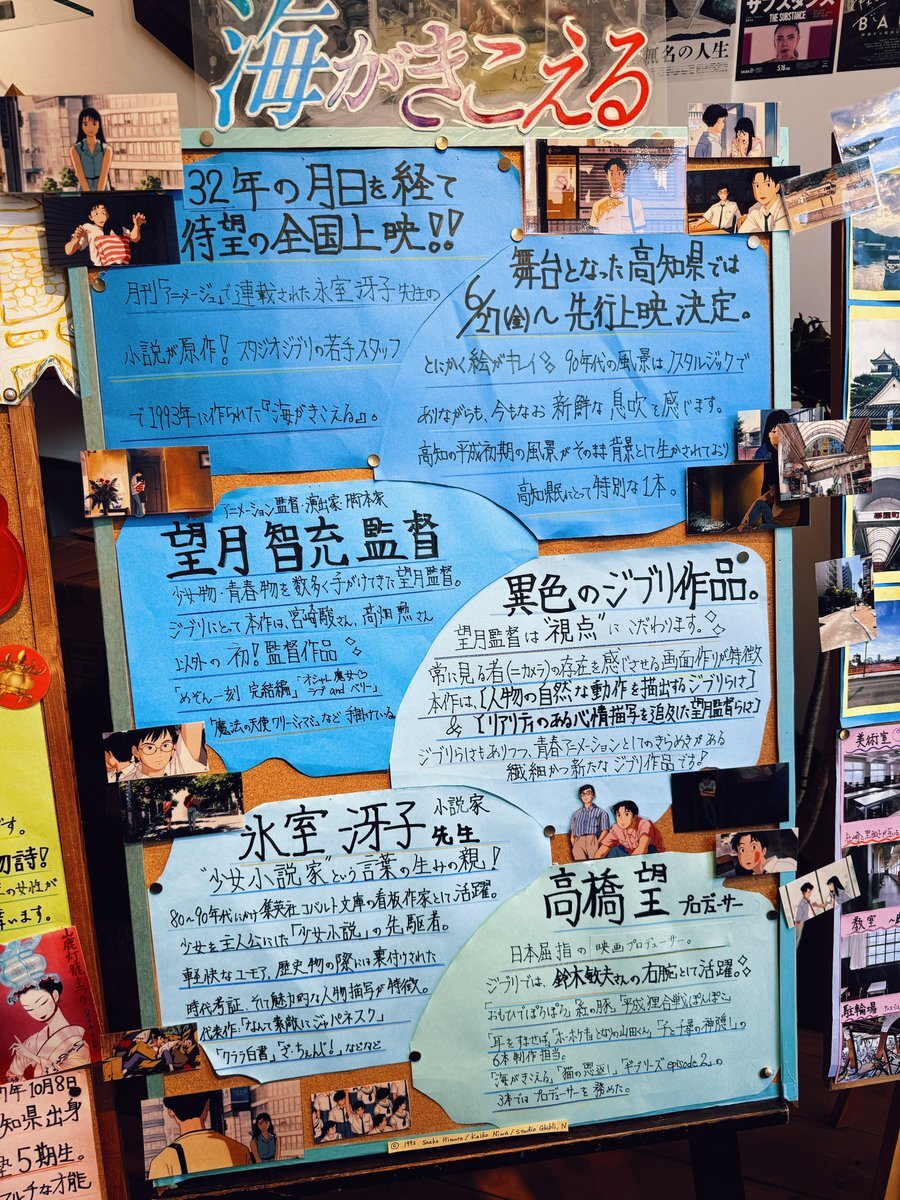 海がきこえる
32年の月日を経て
待望の全国上映!!
月刊「アニメージュ」で連載された氷室冴子先生の
小説が原作! スタジオジブリの若手スタッフ
で1993年に作られた『海がきこえる』。
舞台となった高知県では
6/27(金)〜先行上映決定。
とにかく絵がキレイ 90年代の風景はノスタルジックで
ありながらも、今もなお新鮮な息吹を感じます。
高知の平成初期の風景がそのまま背景として生かされており
高知県にとって特別な1本。
アニメーション監督・演出家・脚本家
望月智充監督
少女物・青春物を数多く手がけてきた望月監督。
ジブリにとって本作は、宮崎駿さん、高畑勲さん
以外の初!監督作品
「めぞん一刻 完結編」「オシャレ魔女♡
ラブ and ベリー」
「魔法の天使クリーミィマミ」など手掛けている
異色のジブリ作品。
望月監督は"視点"にこだわります。
常に見る者(=カメラ)の存在を感じさせる画面作りが特徴
本作は、[人物の自然な動作を描出するジブリらしさ]
& [リアリティのある心情描写を追及した望月監督らしさ]
ジブリらしさもありつつ、青春アニメーションとしてのきらめきがある
繊細かつ新たなジブリ作品です!
氷室冴子 小説家
先生
"少女小説家"という言葉の生みの親!
80〜90年代にかけ集英社コバルト文庫の看板作家として活躍。
少女を主人公にした「少女小説」の先駆者。
軽快なユーモア、歴史物の際には裏付けされた
時代考証、そして魅力的な人物描写が特徴。
代表作:「なんて素敵にジャパネスク」
「クララ白書」「ざ・ちぇんじ!」などなど
高橋望 プロデューサー
日本屈指の映画プロデューサー。
ジブリでは、鈴木敏夫さんの右腕として活躍。
「おもひでぽろぽろ」「紅の豚」「平成狸合戦ぽんぽこ」
「耳をすませば」「ホーホケキョとなりの山田くん」「千と千尋の神隠し」の
6本制作担当。
「海がきこえる」「猫の恩返し」「ギブリーズ episode2」の
3本ではプロデューサーを務めた。
© 1993 Saeko Himuro / Keiko Niwa / Studio Ghibli, N
サブスタンス
THE SUBSTANCE
名の人生
BA
です。
物詩!
の女性が
います。
年10月8日
知県出身
塾5期生。
マルチな才能
美術室
教室
駐輪場